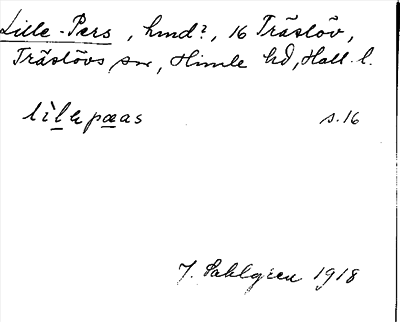 Lille-Pers, hmd?, 16 Träslöv,
Träslövs sn, Himle hd, Hall. l.
lìlepæas s. 16
J. Sahlgren 1918